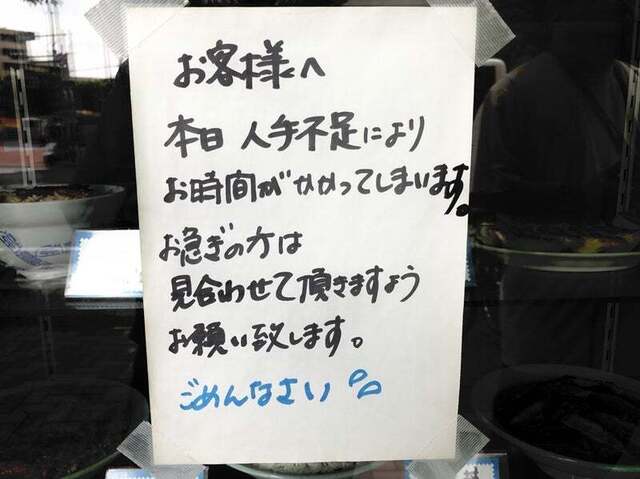 お客様へ
本日 人手不足により
お時間がかかってしまいます。
お急ぎの方は
見合わせて頂きますよう
お願い致します。
ごめんなさい